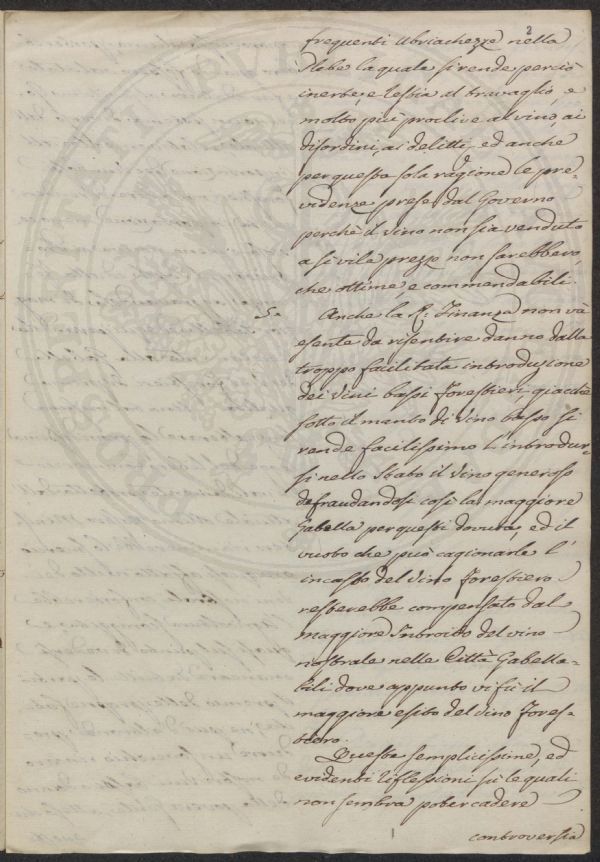 2
frequenti Ubriachezze nella
Plebe la quale si rende perciò
inerte, e restia al travaglio, e
molto più proclive al vino, ai
disordini, ai delitti, ed anche
per questa sola ragione le pre=
videnze prese dal Governo
perchè il vino non sia venduto
a sì vile prezzo non sarebbero,
che ottime, e commendabili.
5.° Anche la R.ª Finanza non và
esente da risentire danno dalla
troppo facilitata introduzione
dei vini bassi Forestieri, giacchè
sotto il manto di vino basso si
rende facilissimo l'introdur=
si nello Stato il vino generoso
defraudandosi così la maggiore
Gabella per questi dovuta, ed il
vuoto che può cagionarle l'
incasso del vino Forestiero
resterebbe compensato dal
maggiore Introito del vino
nostrale nelle Città Gabella=
bili dove appunto vi fù il
maggiore esito del vino Fores=
tiero.
Queste semplicissime, ed
evidenti riflessioni su le quali
non sembra poter cadere
controversia